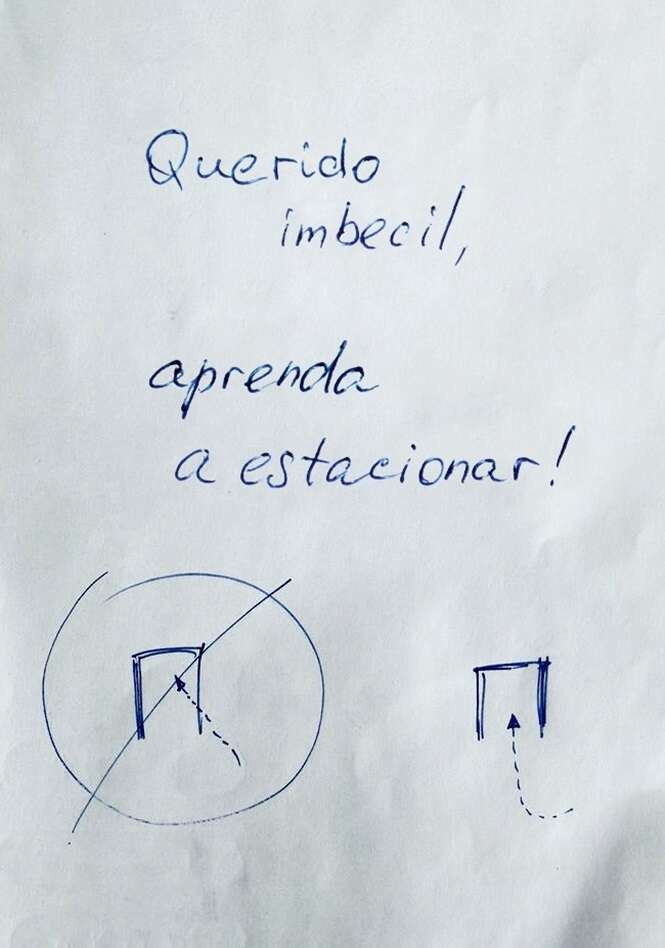 Querido
imbecil,
aprenda
a estacionar!